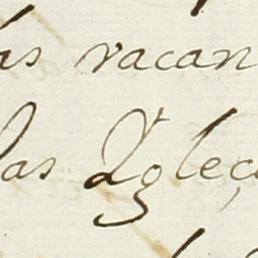 as vacan
as Igleç